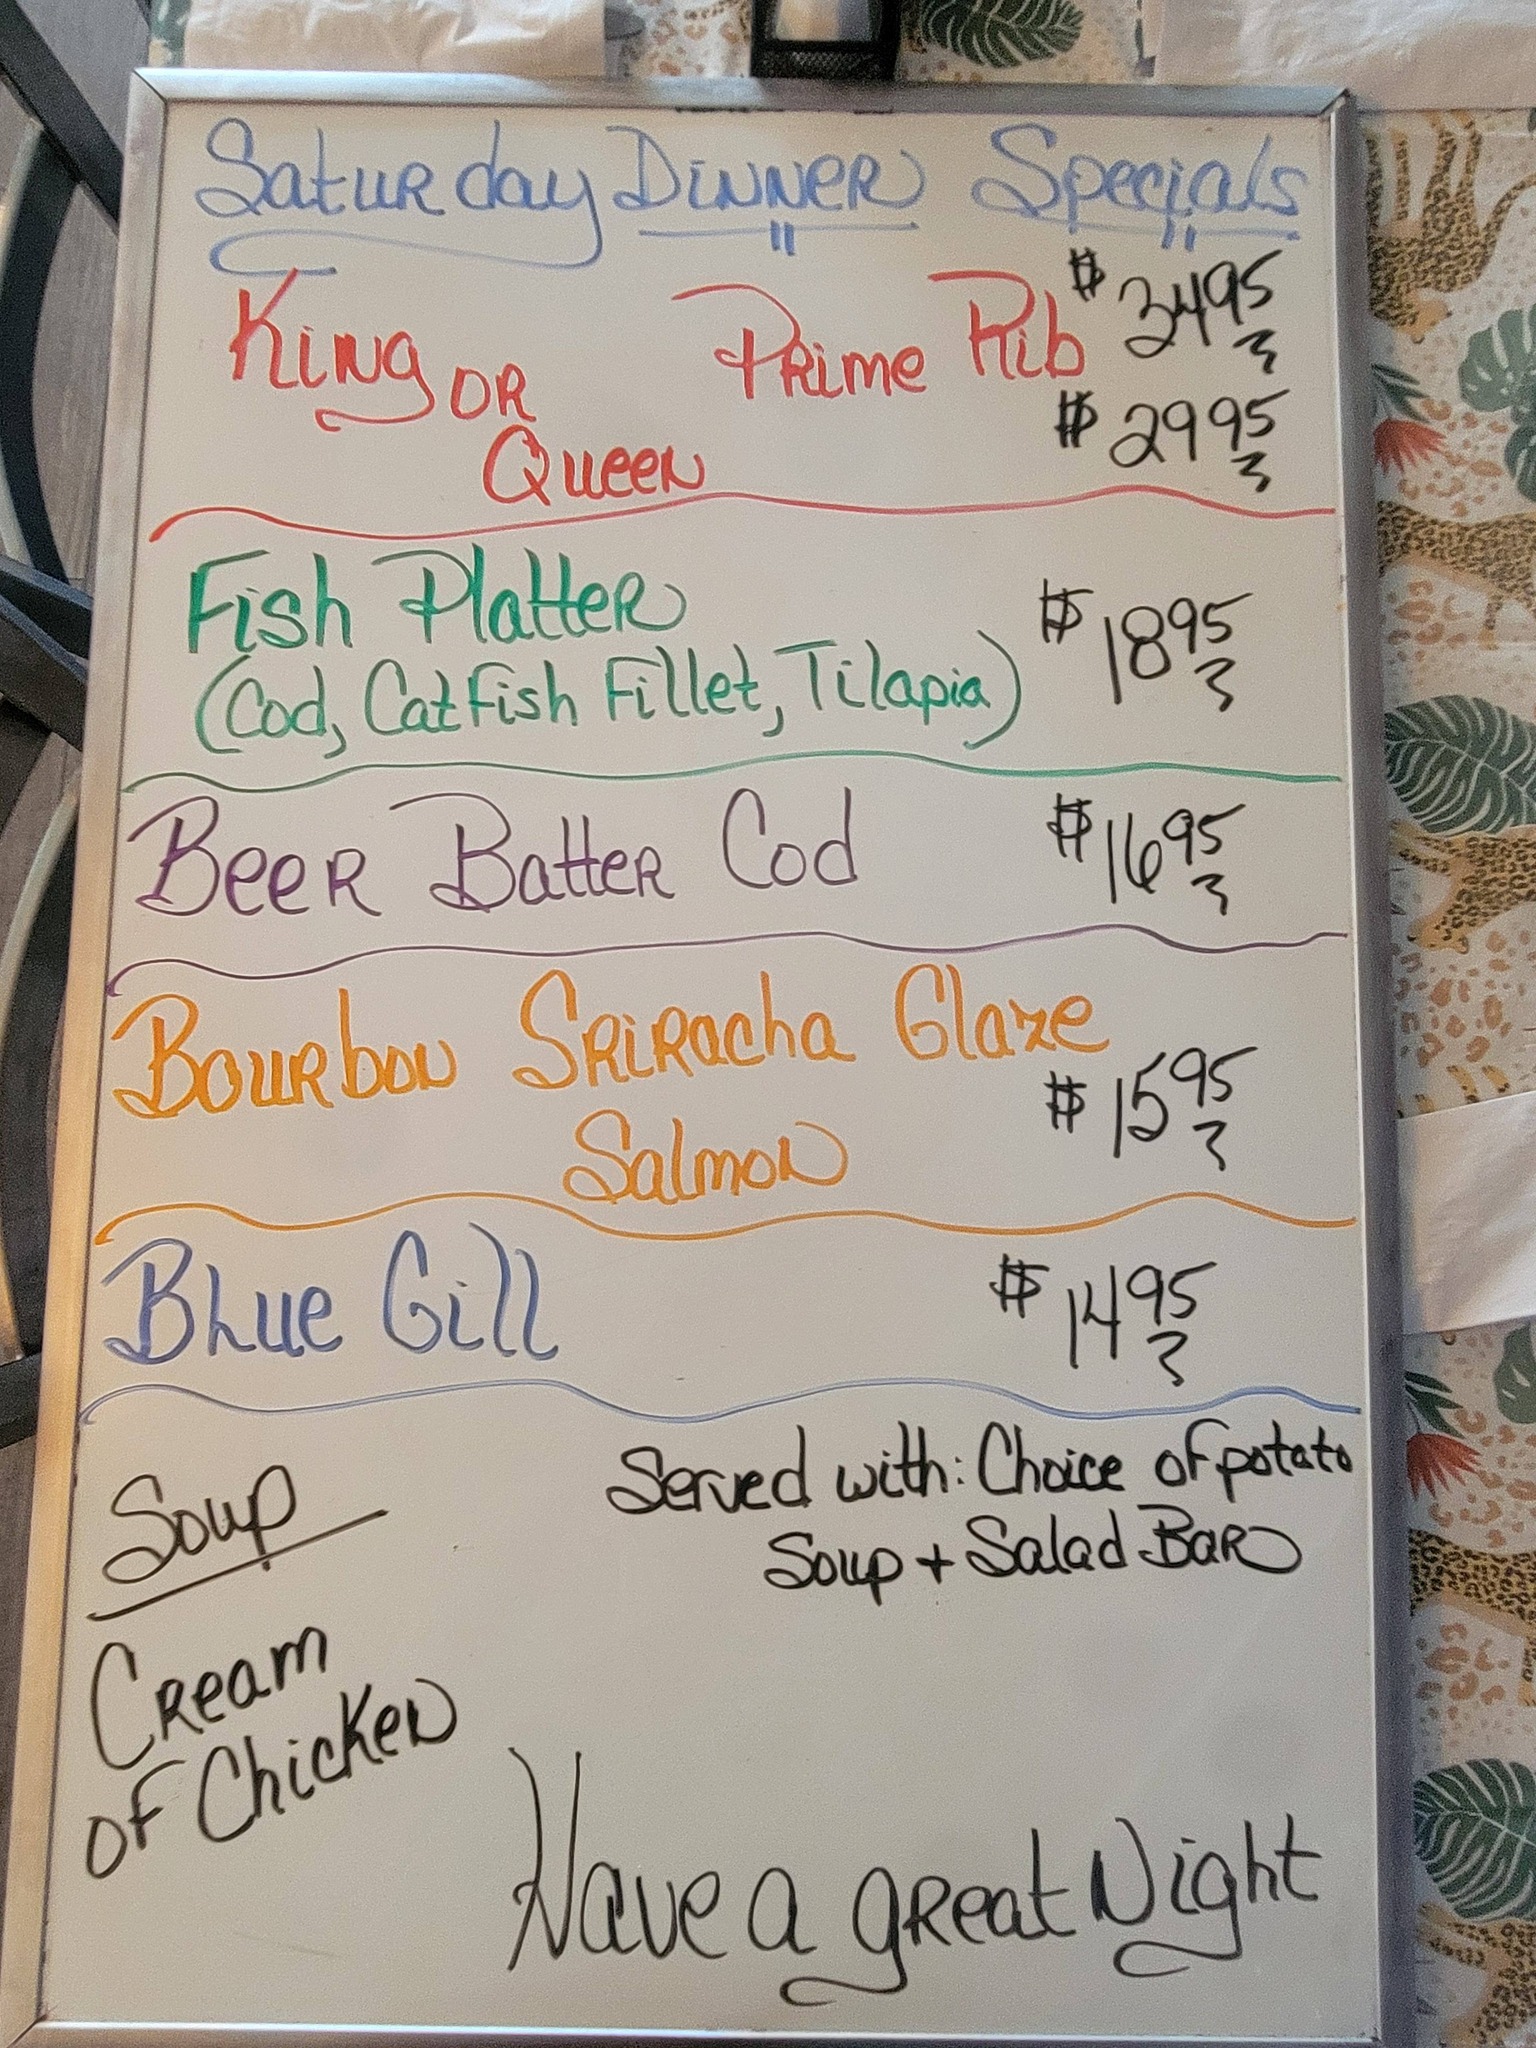 Saturday Dinner Specials
King or Queen Prime Rib $34.95
$29.95
Fish Platter
(Cod, Catfish Fillet, Tilapia) $18.95
Beer Batter Cod $16.95
Bourbon Sriracha Glaze
Salmon $15.95
Blue Gill $14.95
Served with: Choice of potato
Soup + Salad Bar
Soup
Cream
of Chicken
Have a great Night